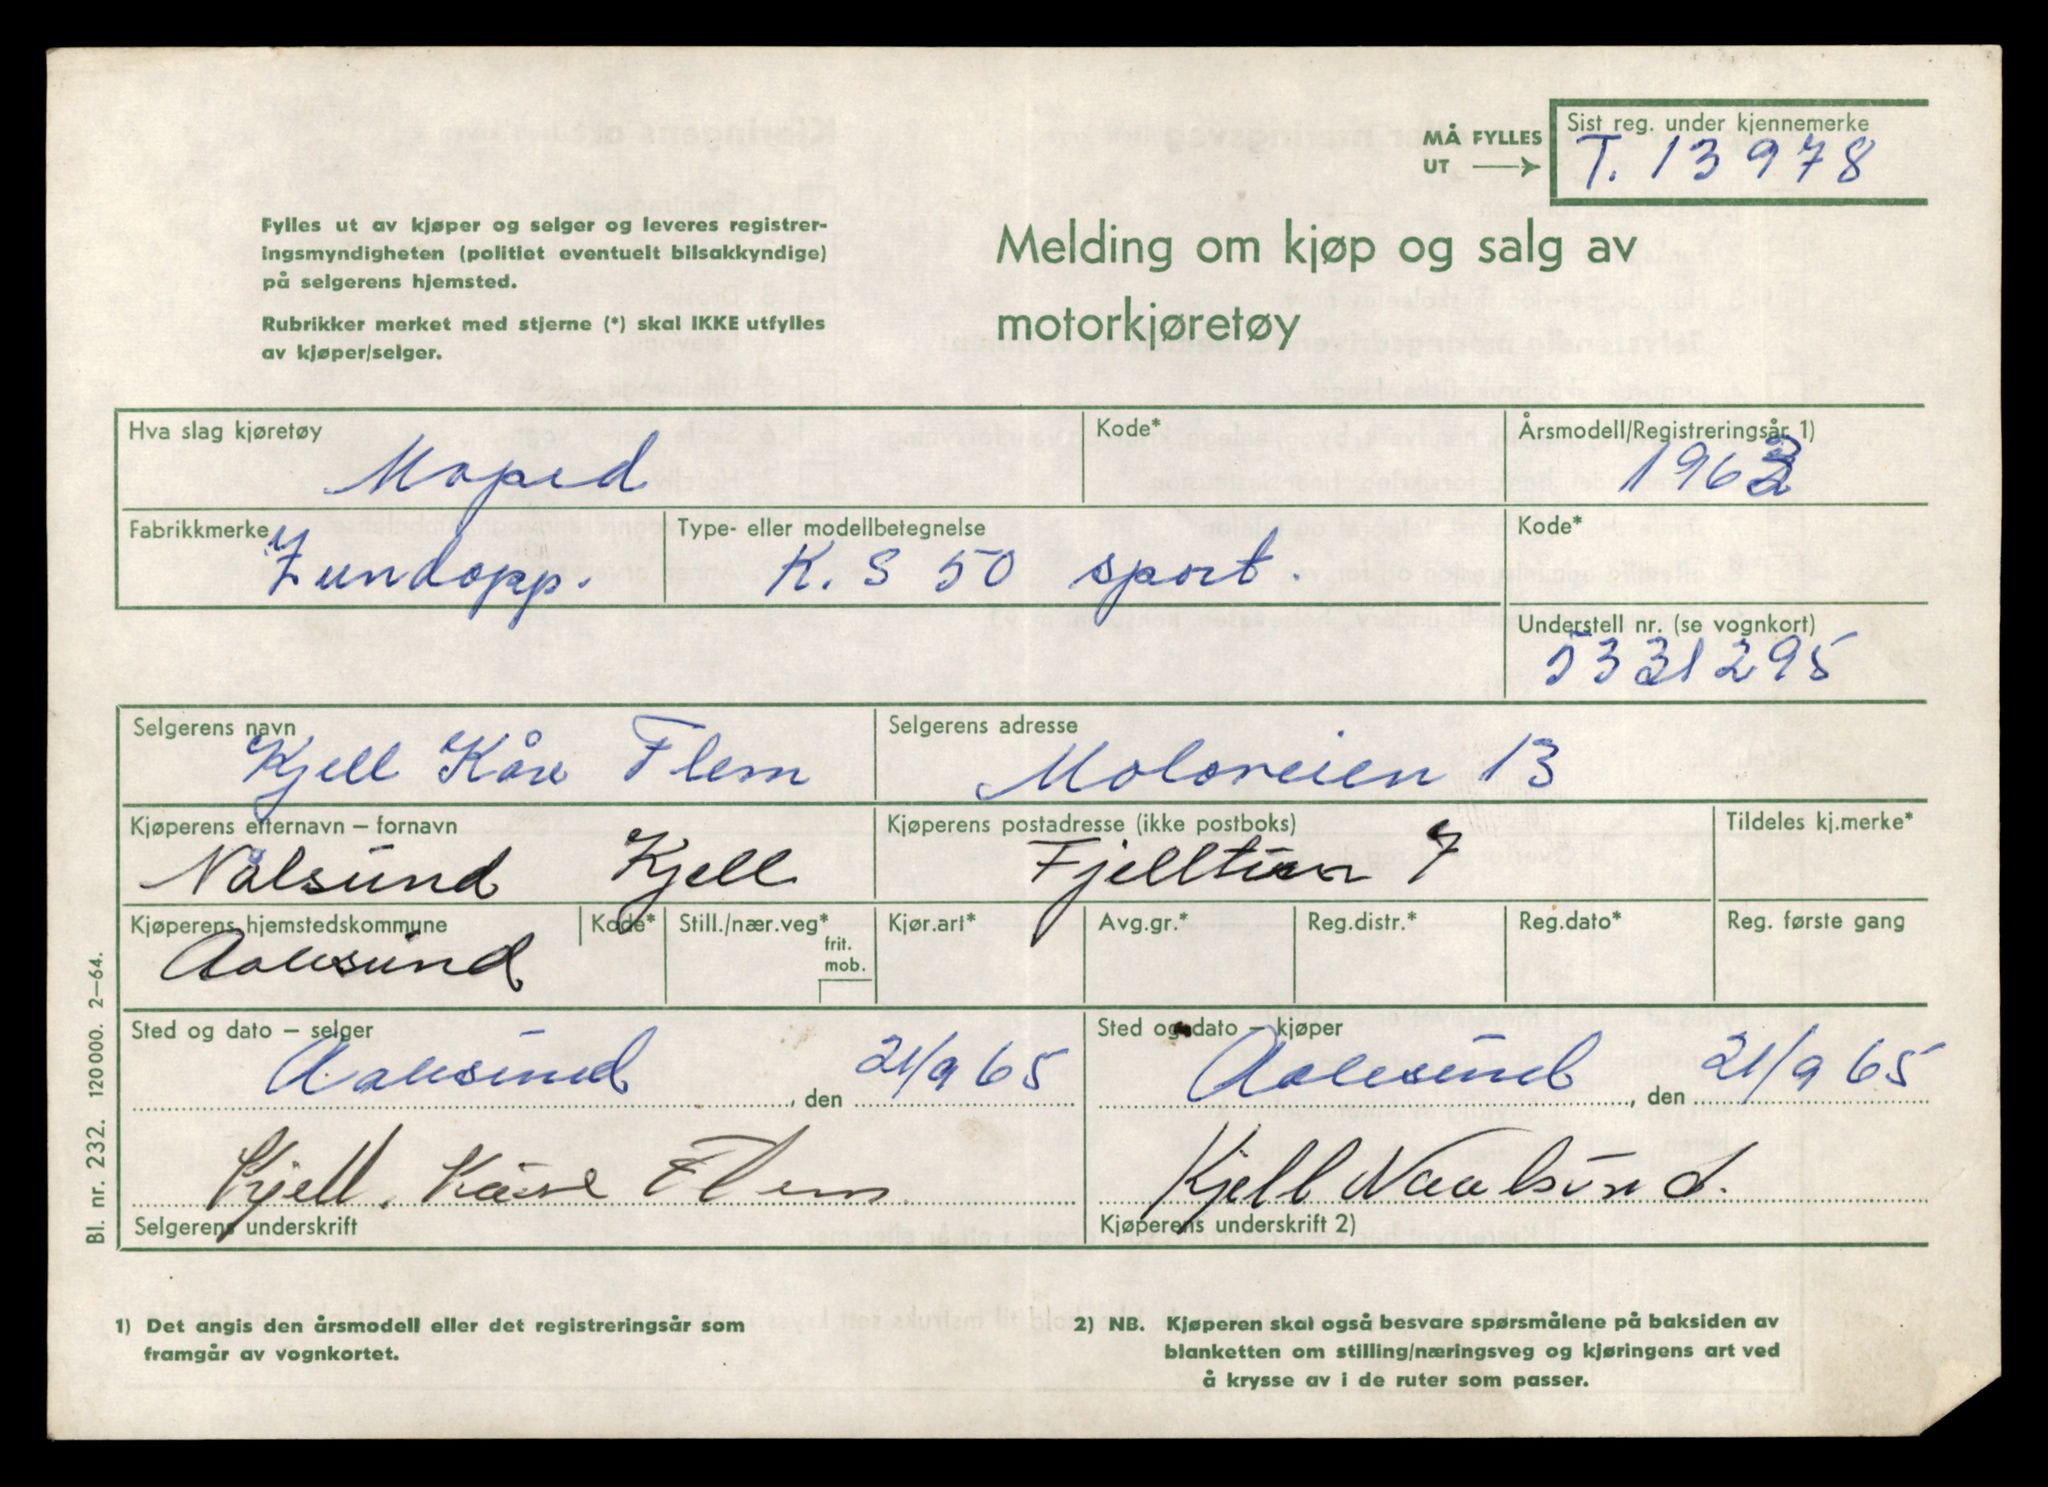 MÅ FYLLES
UT
Sist reg. under kjennemerke
T. 13978
Fylles ut av kjøper og selger og leveres registrer-
ingsmyndigheten (politiet eventuelt bilsakkyndige)
på selgerens hjemsted.
Rubrikker merket med stjerne (*) skal IKKE utfylles
av kjøper/selger.
Melding om kjøp og salg av
motorkjøretøy
Hva slag kjøretøy
Moped
Kode*
Årsmodell/Registreringsår 1)
1962
Fabrikkmerke
Zundapp.
Type- eller modellbetegnelse
K. S 50 sport.
Kode*
Understell nr. (se vognkort)
5331295
Selgerens navn
Kjell Kåre Flem
Selgerens adresse
Moloveien 13
Kjøperens etternavn – fornavn
Nålsund Kjell
Kjøperens postadresse (ikke postboks)
Fjelltun 7
Tildeles kj.merke*
Kjøperens hjemstedskommune
Aalesund
Kode*
Still./nær.veg*
frit.
mob.
Kjør.art*
Avg.gr.*
Reg.distr.*
Reg.dato*
Reg. første gang
Sted og dato – selger
Aalesund, den 21/9 65
Sted og dato – kjøper
Aalesund, den 21/9 65
Kjell. Kåre Flem
Selgerens underskrift
Kjell Naalsund.
Kjøperens underskrift 2)
Bl. nr. 232. 120000. 2–64.
1) Det angis den årsmodell eller det registreringsår som
framgår av vognkortet.
2) NB. Kjøperen skal også besvare spørsmålene på baksiden av
blanketten om stilling/næringsveg og kjøringens art ved
å krysse av i de ruter som passer.